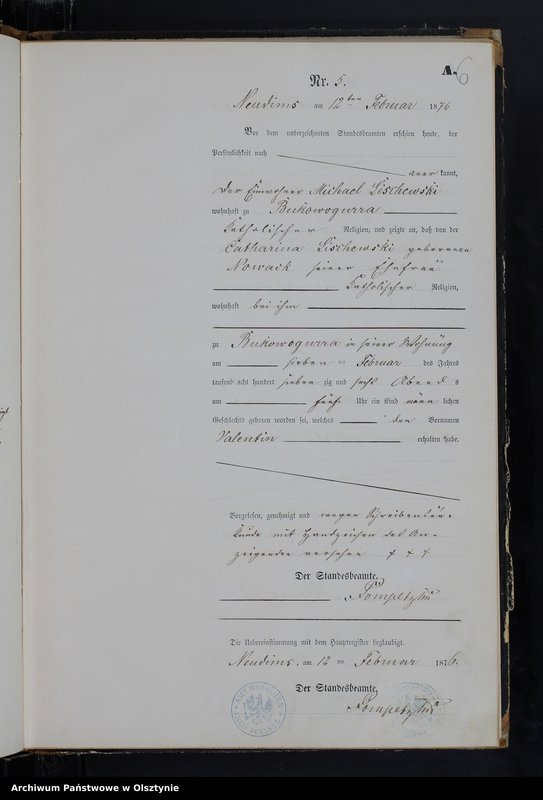 A.
6
Nr. 5.
Neudims am 12ten Februar 1876
Vor dem unterzeichneten Standesbeamten erschien heute, der
Persönlichkeit nach
aner kannt,
der Einwohner Michael Lischewski
wohnhaft zu Bukowogurra
Katholischer Religion, und zeigte an, daß von der
Catharina Lischewski geborenen
Nowack seiner Ehefrau
Katholischer Religion,
wohnhaft bei ihm
zu Bukowogurra in seiner Wohnung
am sieben ten Februar des Jahres
tausend acht hundert sieben zig und sechs Abends
um fünf Uhr ein Kind männ lichen
Geschlechts geboren worden sei, welches den Vornamen
Valentin erhalten habe.
Vorgelesen, genehmigt und wegen Schreibensun=
kunde mit Handzeichen des An=
zeigenden versehen + + +
Der Standesbeamte.
Die Uebereinstimmung mit dem Hauptregister beglaubigt.
Neudims, am 12 ten Februar 1876.
Der Standesbeamte.
Archiwum Państwowe w Olsztynie